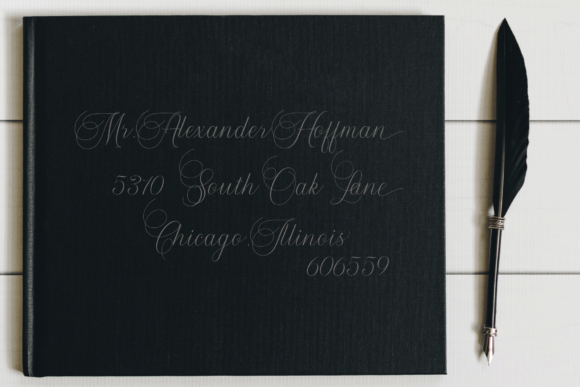 Mr. Alexander Hoffman
5310 South Oak Lane
Chicago. Illinois
606559